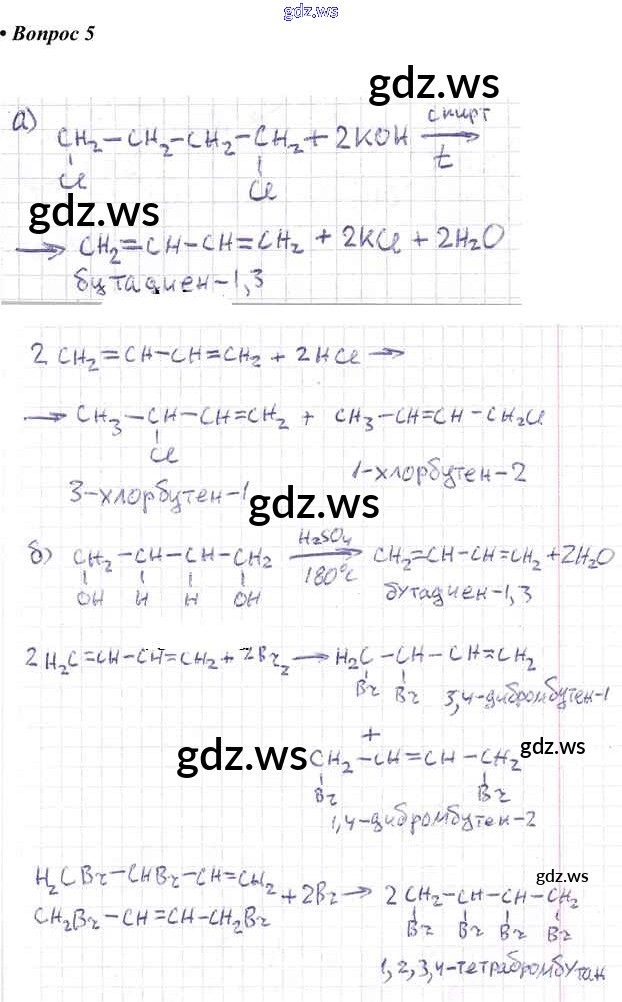 gdz.ws
• Вопрос 5
gdz.ws
а) CH₂–CH₂–CH₂–CH₂ + 2KOH спирт t →
Cl Cl
gdz.ws
→ CH₂=CH–CH=CH₂ + 2KCl + 2H₂O
бутадиен-1,3
2 CH₂=CH–CH=CH₂ + 2HCl →
→ CH₃–CH–CH=CH₂ + CH₃–CH=CH–CH₂Cl
Cl
1-хлорбутен-2
3-хлорбутен-1
gdz.ws
б) CH₂–CH–CH–CH₂ H₂SO₄ 180°C → CH₂=CH–CH=CH₂ + 2H₂O
OH H H OH
бутадиен-1,3
2 H₂C=CH–CH=CH₂ + 2Br₂ → H₂C–CH–CH=CH₂
Br Br
3,4-дибромбутен-1
+
gdz.ws
CH₂–CH=CH–CH₂
gdz.ws
Br Br
1,4-дибромбутен-2
gdz.ws
H₂CBr–CHBr–CH=CH₂
CH₂Br–CH=CH–CH₂Br
+ 2Br₂ → 2 CH₂–CH–CH–CH₂
Br Br Br Br
1,2,3,4-тетрабромбутан